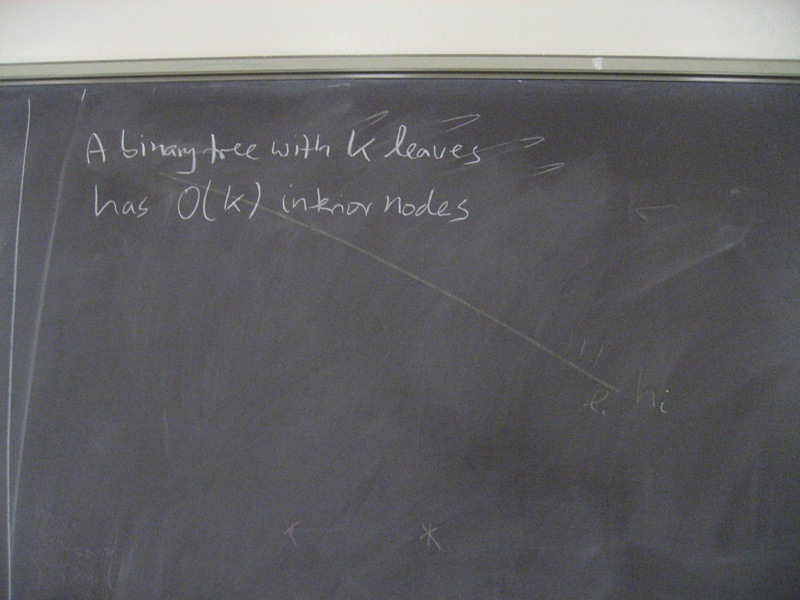 A binary tree with k leaves
has O(k) interior nodes
hi